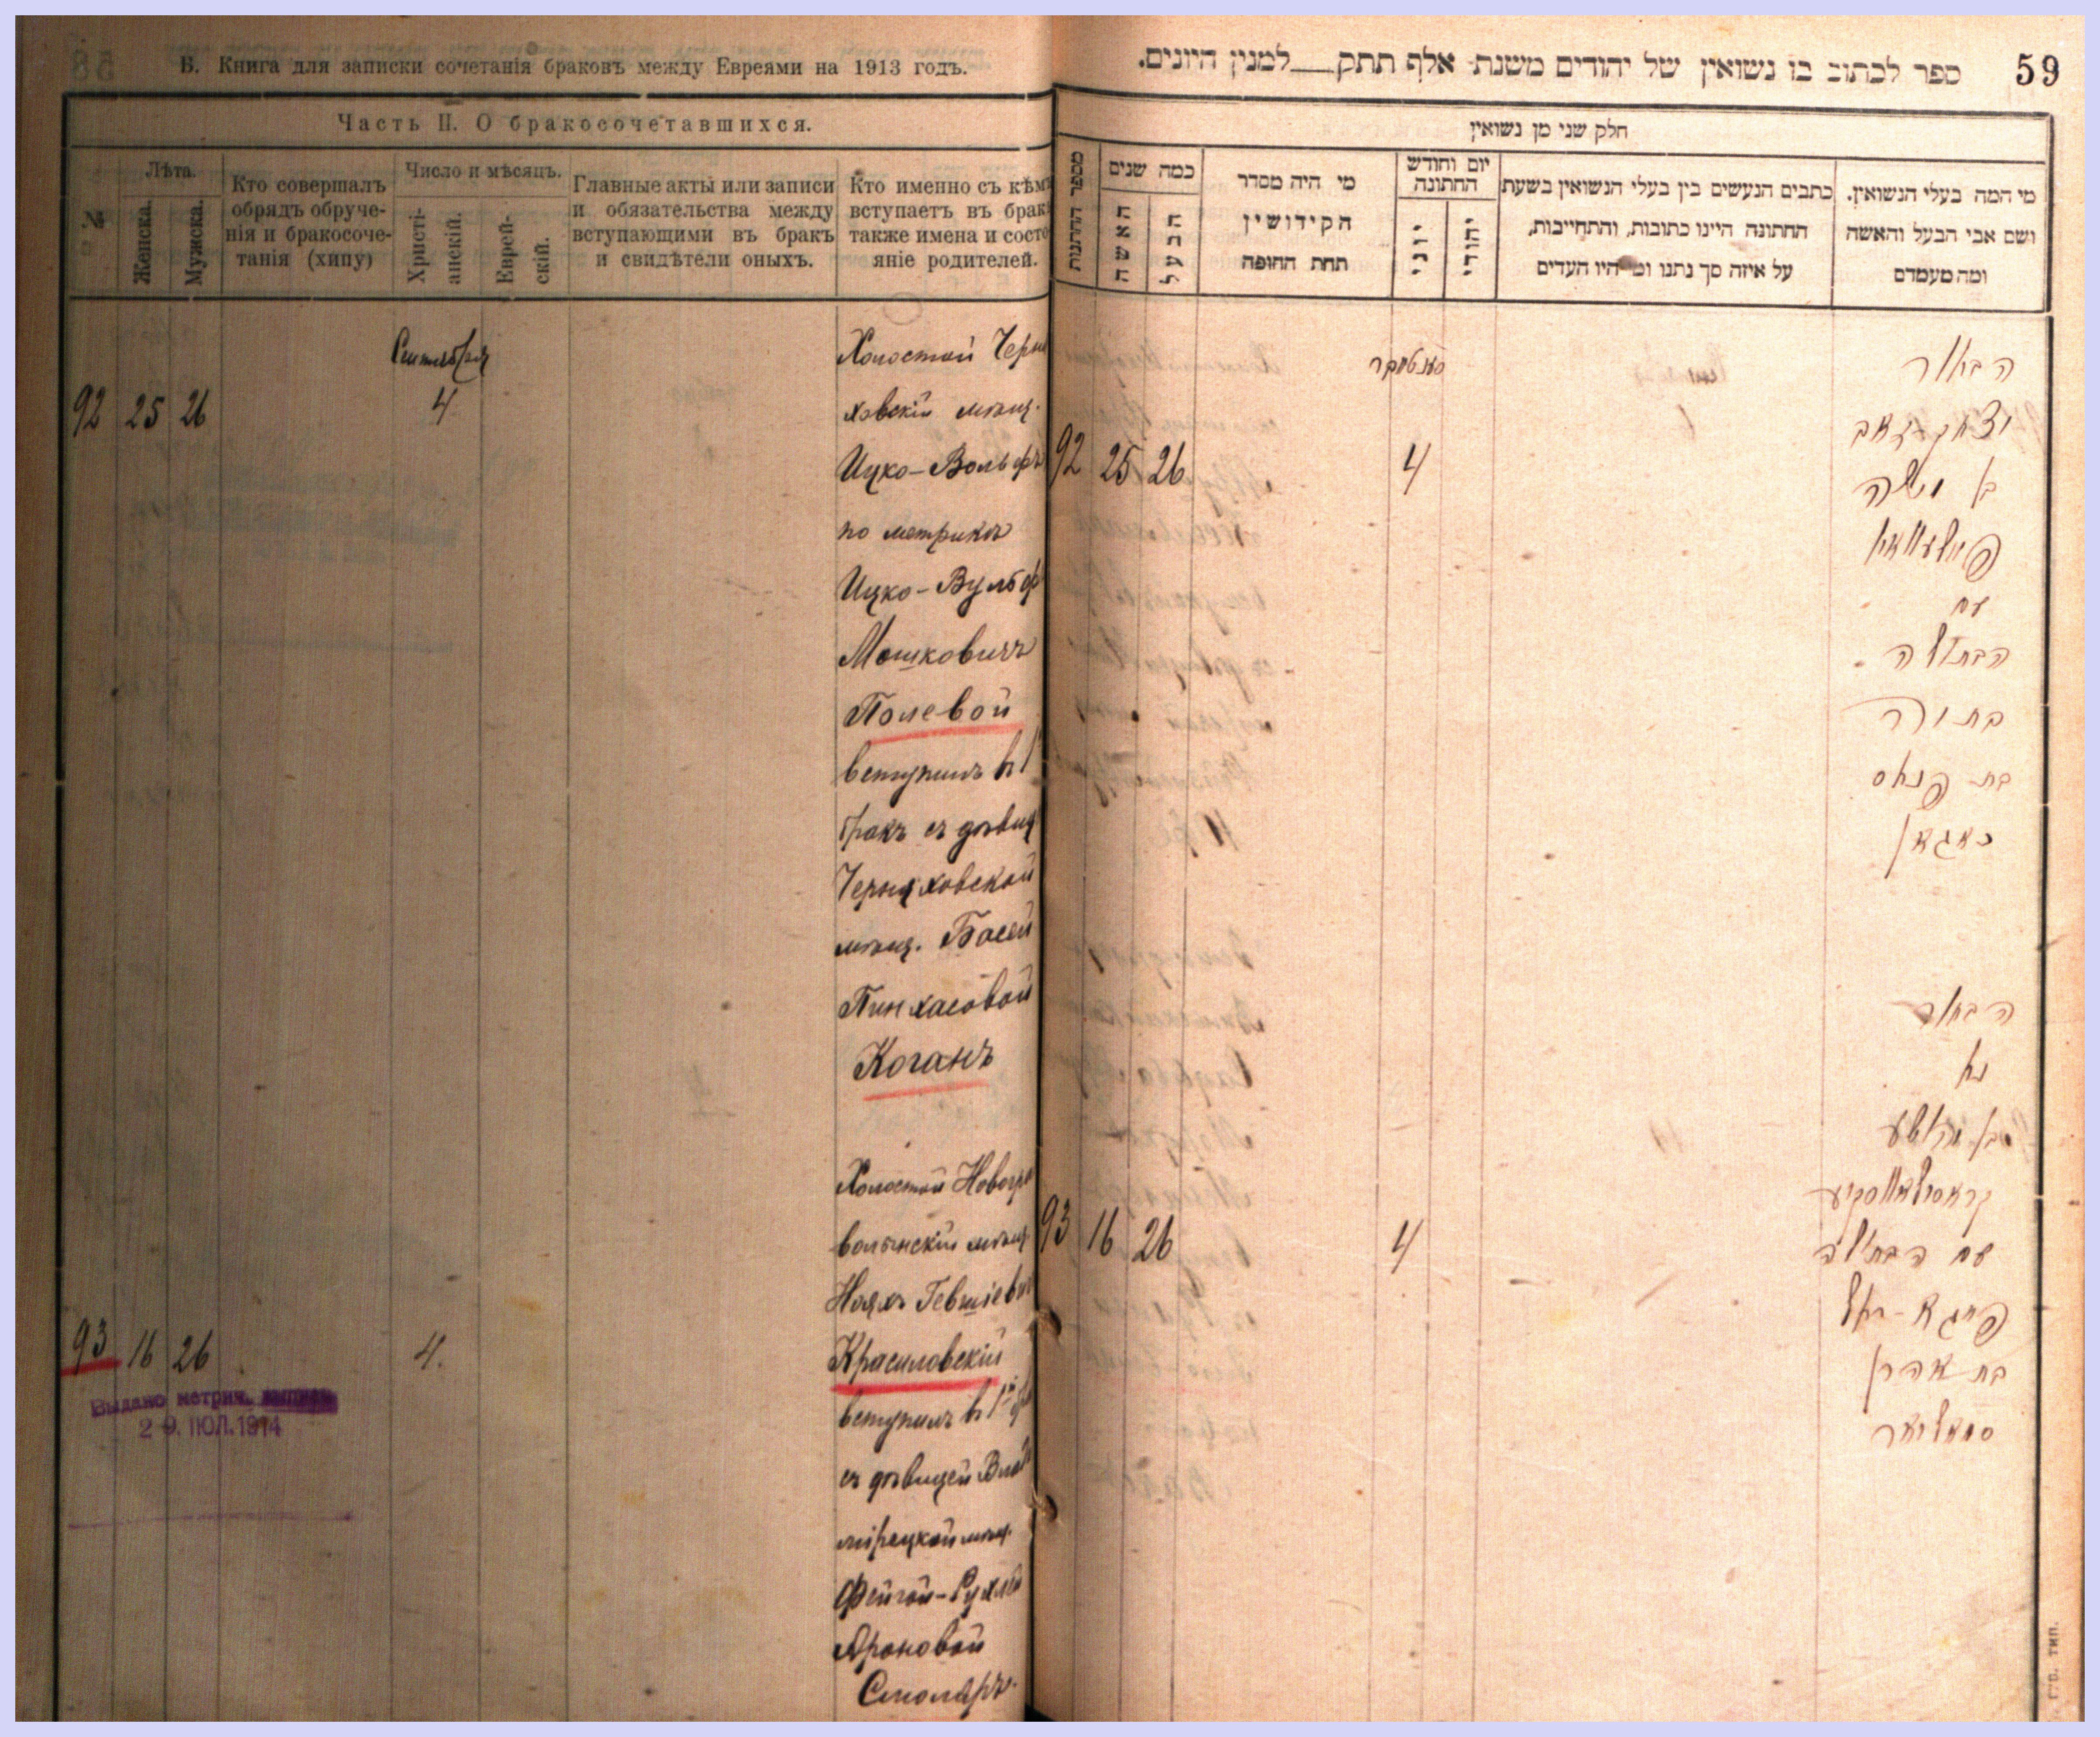 В. Книга для записки сочетанія браковъ между Евреями на 1913 годъ.
Часть II. О бракосочетавшихся.
№
Лѣта.
Женска.
Мужска.
Кто совершалъ
обрядъ обруче-
нія и бракосоче-
танія (хипу)
Число и мѣсяцъ.
Христі-
анскій.
Еврей-
скій.
Главные акты или записи
и обязательства между
вступающими въ бракъ
и свидѣтели оныхъ.
Кто именно съ кѣмъ
вступаетъ въ бракъ
также имена и состо
яніе родителей.
Сентября
92 25 26 4
Холостой Черня
ховскій мѣщ.
Ицко-Вольфъ
по метрикѣ
Ицко-Вульф
Мошковичъ
Полевой
вступилъ в 1
бракъ съ дѣвиц
Черняховской
мѣщ. Басей
Пинхасовой
Коганъ
93 16 26 4.
Холостой Новогра
волынскій мѣщ.
Ноахъ Гевшіевич
Красиловскій
вступилъ в 1й бр
съ дѣвицей Влад
мірецкой мѣщ.
Фейгой-Рухлей
Ароновой
Смоляръ.
Выдано метрич.
29. ІЮЛ. 1914
59
ספר לכתוב בו נשואין של יהודים משנת אלף תתק למנין היונים.
חלק שני מן נשואין
מספר החתנות
כמה שנים
האשה
הבעל
מי היה מסדר
הקידושין
תחת החופה
יום וחודש
החתונה
יוני
יהודי
כתבים הנעשים בין בעלי הנשואין בשעת
החתונה היינו כתובות, והתחייבות,
על איזה סך נתנו ומי היו העדים
מי המה בעלי הנשואין.
ושם אבי הבעל והאשה
ומה מעמדם
סענטאבר
92 25 26 4
הבחור
יצחק זאב
בן משה
פאלעוואי
עם
הבתולה
בת פנחס
קאגאן
93 16 26 4
הבחור
נח
קראסילאווסקי
עם הבתולה
פייגא-רחל
בת אהרן
סמאליאר